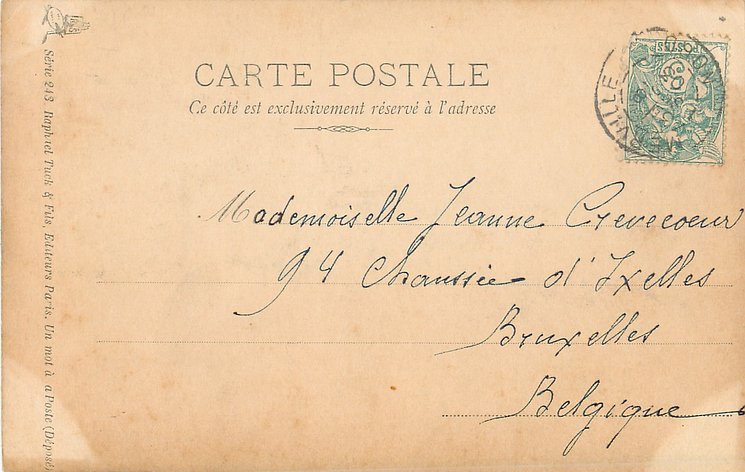 CARTE POSTALE
Ce côté est exclusivement réservé à l'adresse
Mademoiselle Jeanne Crevecoeur
94 Chaussée d'Ixelles
Bruxelles
Belgique
Série 243. Raphael Tuck & Fils, Editeurs Paris. Un mot à a Poste (Déposé)
POSTES